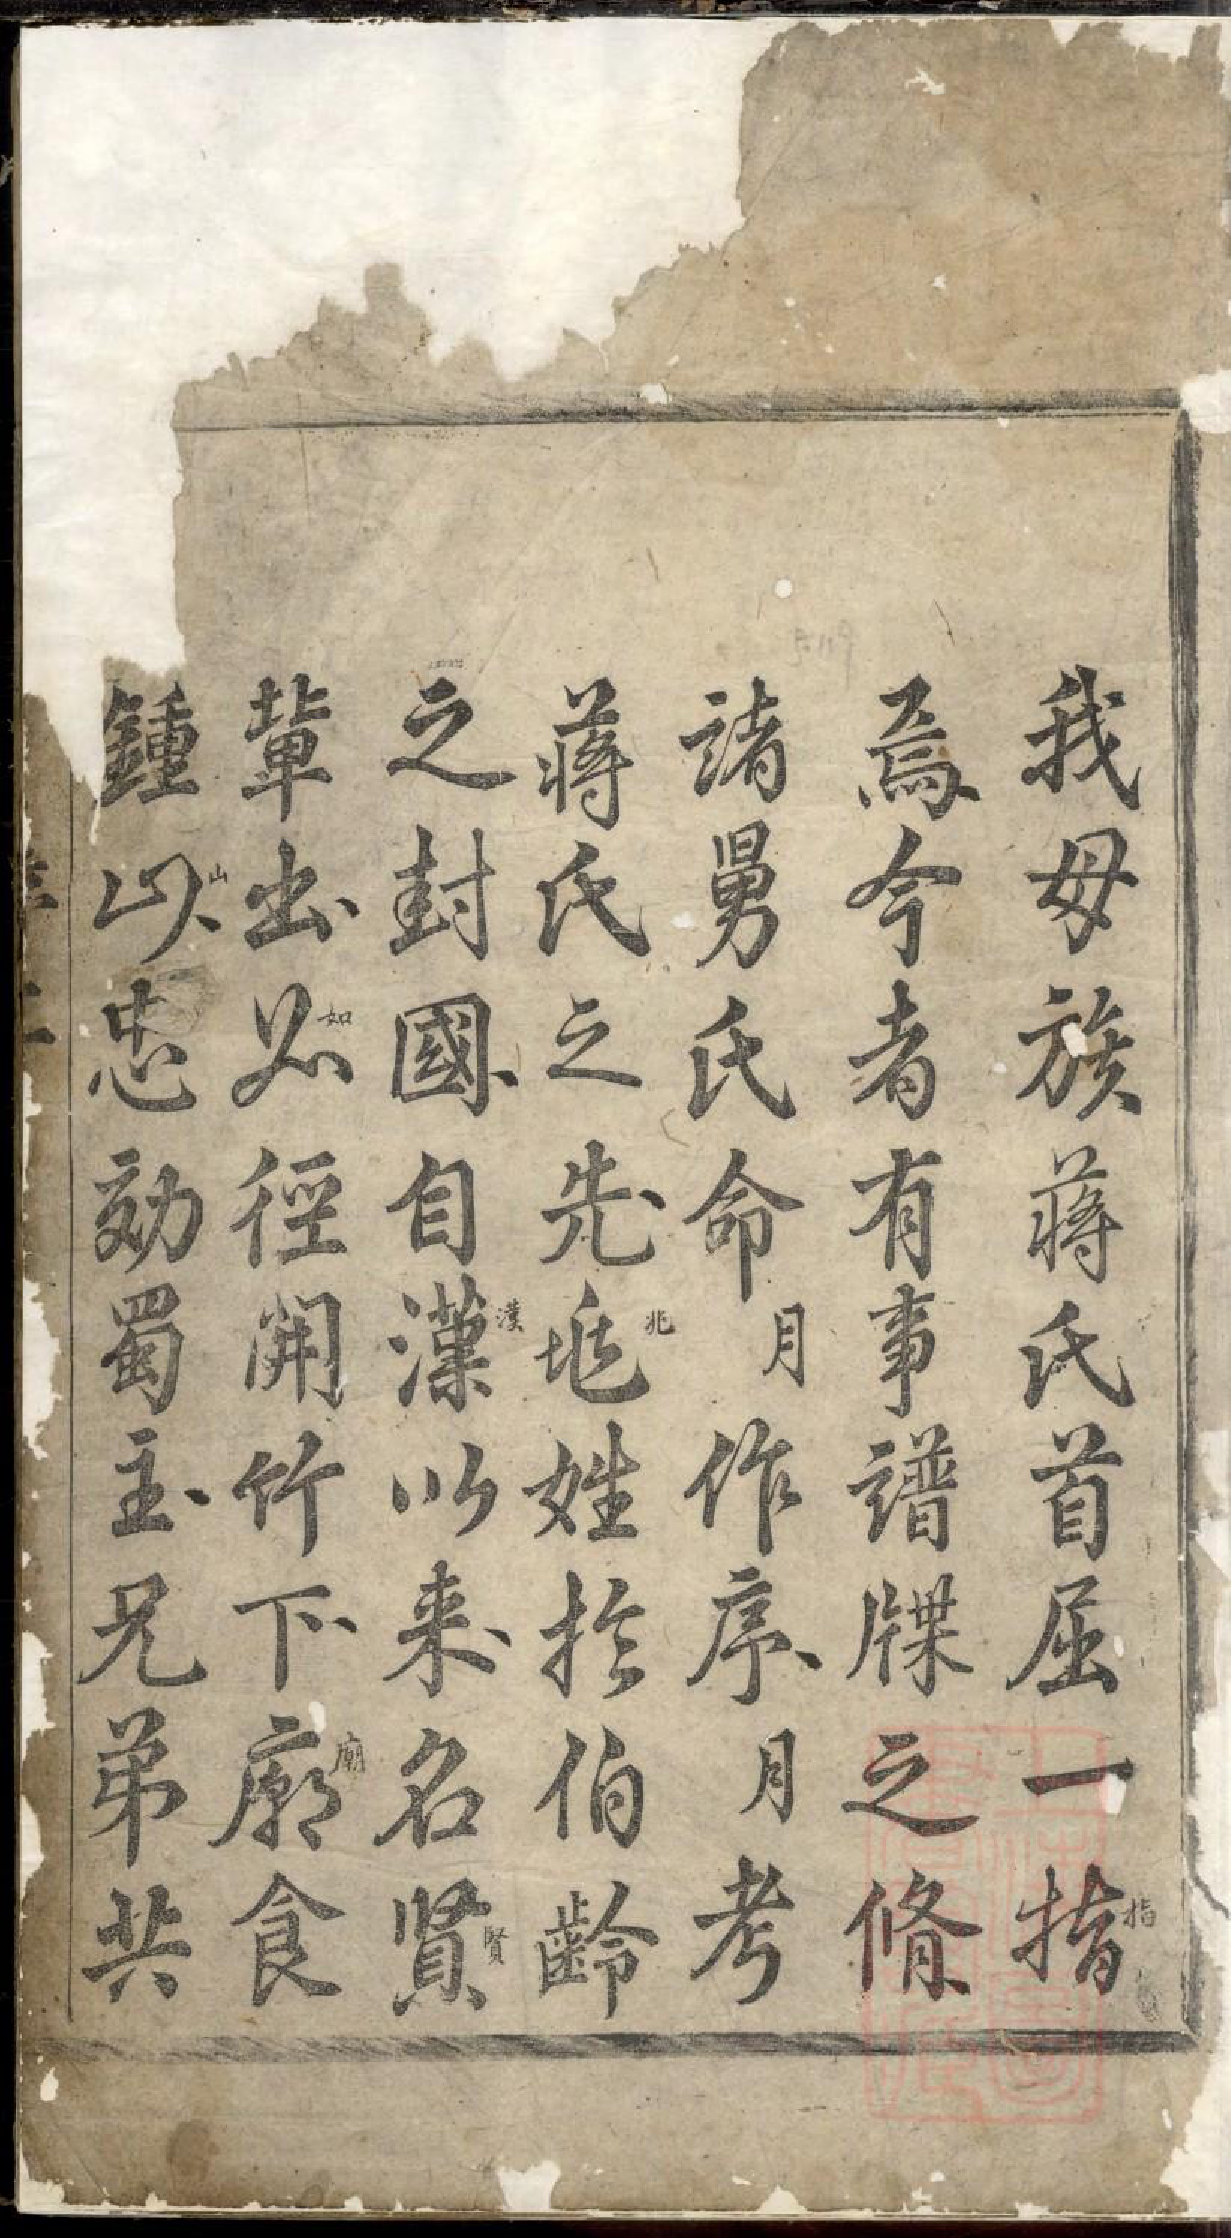 我母族蔣氏首屈一指指
焉今者有事譜牒之脩
諸舅氏命月作序月考
蔣氏之先兆兆姓於伯齡
之封國自漢漢以来名賢賢
輩出如如徑開竹下廟廟食
鍾山山忠効蜀主兄弟共